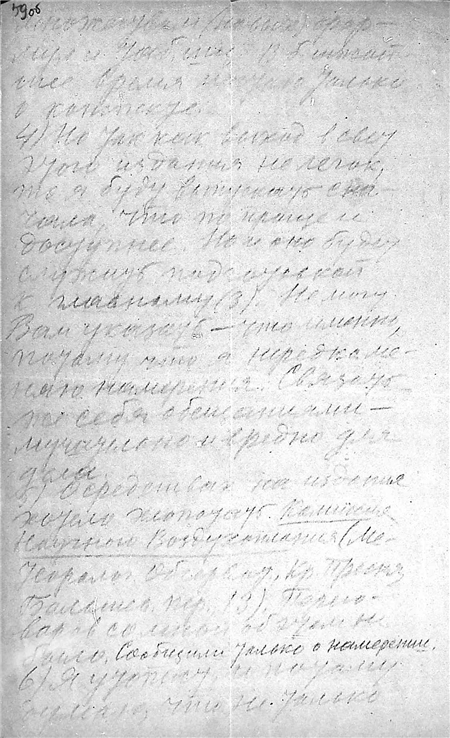 5906
множество
время только
о конспекте.
4) Но так как выход в свет
этого издания не легок,
то я буду выпускать сна-
чала, что попроще и
доступнее. Но и оно будет
служить подготовкой
к главному (3). Не могу
Вам указать — что именно,
потому что я нередко ме-
няю намерения. Связать
же себя обещаниями —
мучительно и вредно для
дела.
5) О средствах на издания
хотело хлопотать. Комиссия
Научного Воздухоплавания (Ме-
теоролог. Обсерват., Кр. Пресня,
пер., 13). Перего-
воров со мной об этом не
было. Сообщили только о намерении.
6) Я и потому
думаю, что не только